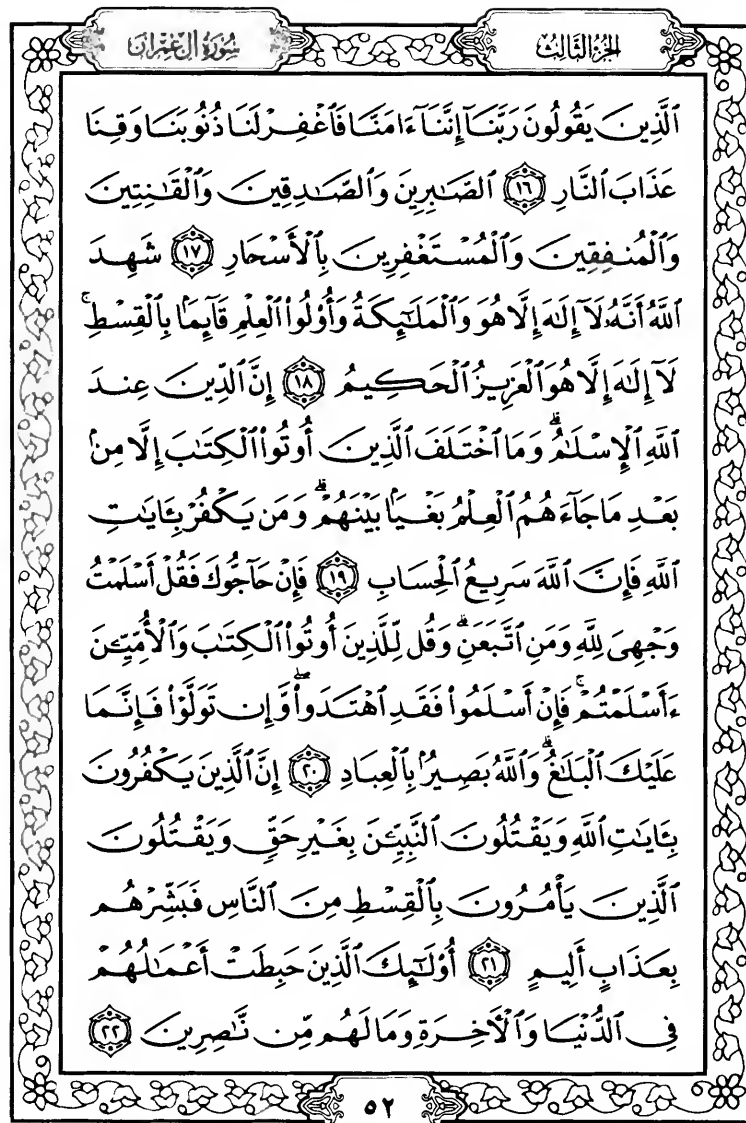 الجزء الثالث
سورة آل عمران
ٱلَّذِينَ يَقُولُونَ رَبَّنَآ إِنَّنَآ ءَامَنَّا فَٱغْفِرْ لَنَا ذُنُوبَنَا وَقِنَا
عَذَابَ ٱلنَّارِ ١٦ ٱلصَّٰبِرِينَ وَٱلصَّٰدِقِينَ وَٱلْقَٰنِتِينَ
وَٱلْمُنفِقِينَ وَٱلْمُسْتَغْفِرِينَ بِٱلْأَسْحَارِ ١٧ شَهِدَ
ٱللَّهُ أَنَّهُۥ لَآ إِلَٰهَ إِلَّا هُوَ وَٱلْمَلَٰٓئِكَةُ وَأُو۟لُوا۟ ٱلْعِلْمِ قَآئِمًۢا بِٱلْقِسْطِ ۚ
لَآ إِلَٰهَ إِلَّا هُوَ ٱلْعَزِيزُ ٱلْحَكِيمُ ١٨ إِنَّ ٱلدِّينَ عِندَ
ٱللَّهِ ٱلْإِسْلَٰمُ ۗ وَمَا ٱخْتَلَفَ ٱلَّذِينَ أُوتُوا۟ ٱلْكِتَٰبَ إِلَّا مِنۢ
بَعْدِ مَا جَآءَهُمُ ٱلْعِلْمُ بَغْيًۢا بَيْنَهُمْ ۗ وَمَن يَكْفُرْ بِـَٔايَٰتِ
ٱللَّهِ فَإِنَّ ٱللَّهَ سَرِيعُ ٱلْحِسَابِ ١٩ فَإِنْ حَآجُّوكَ فَقُلْ أَسْلَمْتُ
وَجْهِىَ لِلَّهِ وَمَنِ ٱتَّبَعَنِ ۗ وَقُل لِّلَّذِينَ أُوتُوا۟ ٱلْكِتَٰبَ وَٱلْأُمِّيِّـۧنَ
ءَأَسْلَمْتُمْ ۚ فَإِنْ أَسْلَمُوا۟ فَقَدِ ٱهْتَدَوا۟ ۖ وَّإِن تَوَلَّوْا۟ فَإِنَّمَا
عَلَيْكَ ٱلْبَلَٰغُ ۗ وَٱللَّهُ بَصِيرٌۢ بِٱلْعِبَادِ ٢٠ إِنَّ ٱلَّذِينَ يَكْفُرُونَ
بِـَٔايَٰتِ ٱللَّهِ وَيَقْتُلُونَ ٱلنَّبِيِّـۧنَ بِغَيْرِ حَقٍّ وَيَقْتُلُونَ
ٱلَّذِينَ يَأْمُرُونَ بِٱلْقِسْطِ مِنَ ٱلنَّاسِ فَبَشِّرْهُم
بِعَذَابٍ أَلِيمٍ ٢١ أُو۟لَٰٓئِكَ ٱلَّذِينَ حَبِطَتْ أَعْمَٰلُهُمْ
فِى ٱلدُّنْيَا وَٱلْءَاخِرَةِ وَمَا لَهُم مِّن نَّٰصِرِينَ ٢٢
٥٢